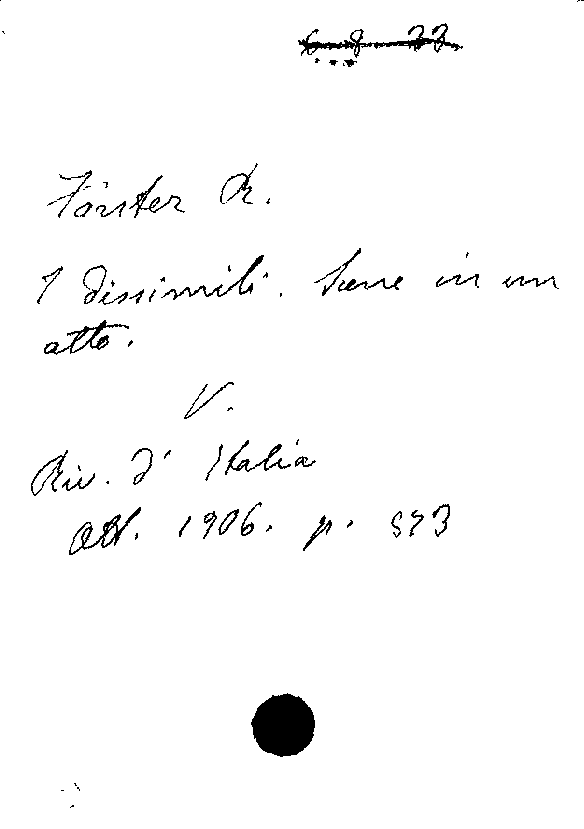 6 8 33
Förster R.
I Dissimili. Scene in un
atto.
V.
Riv. d' Italia
Ott. 1906. p. 573